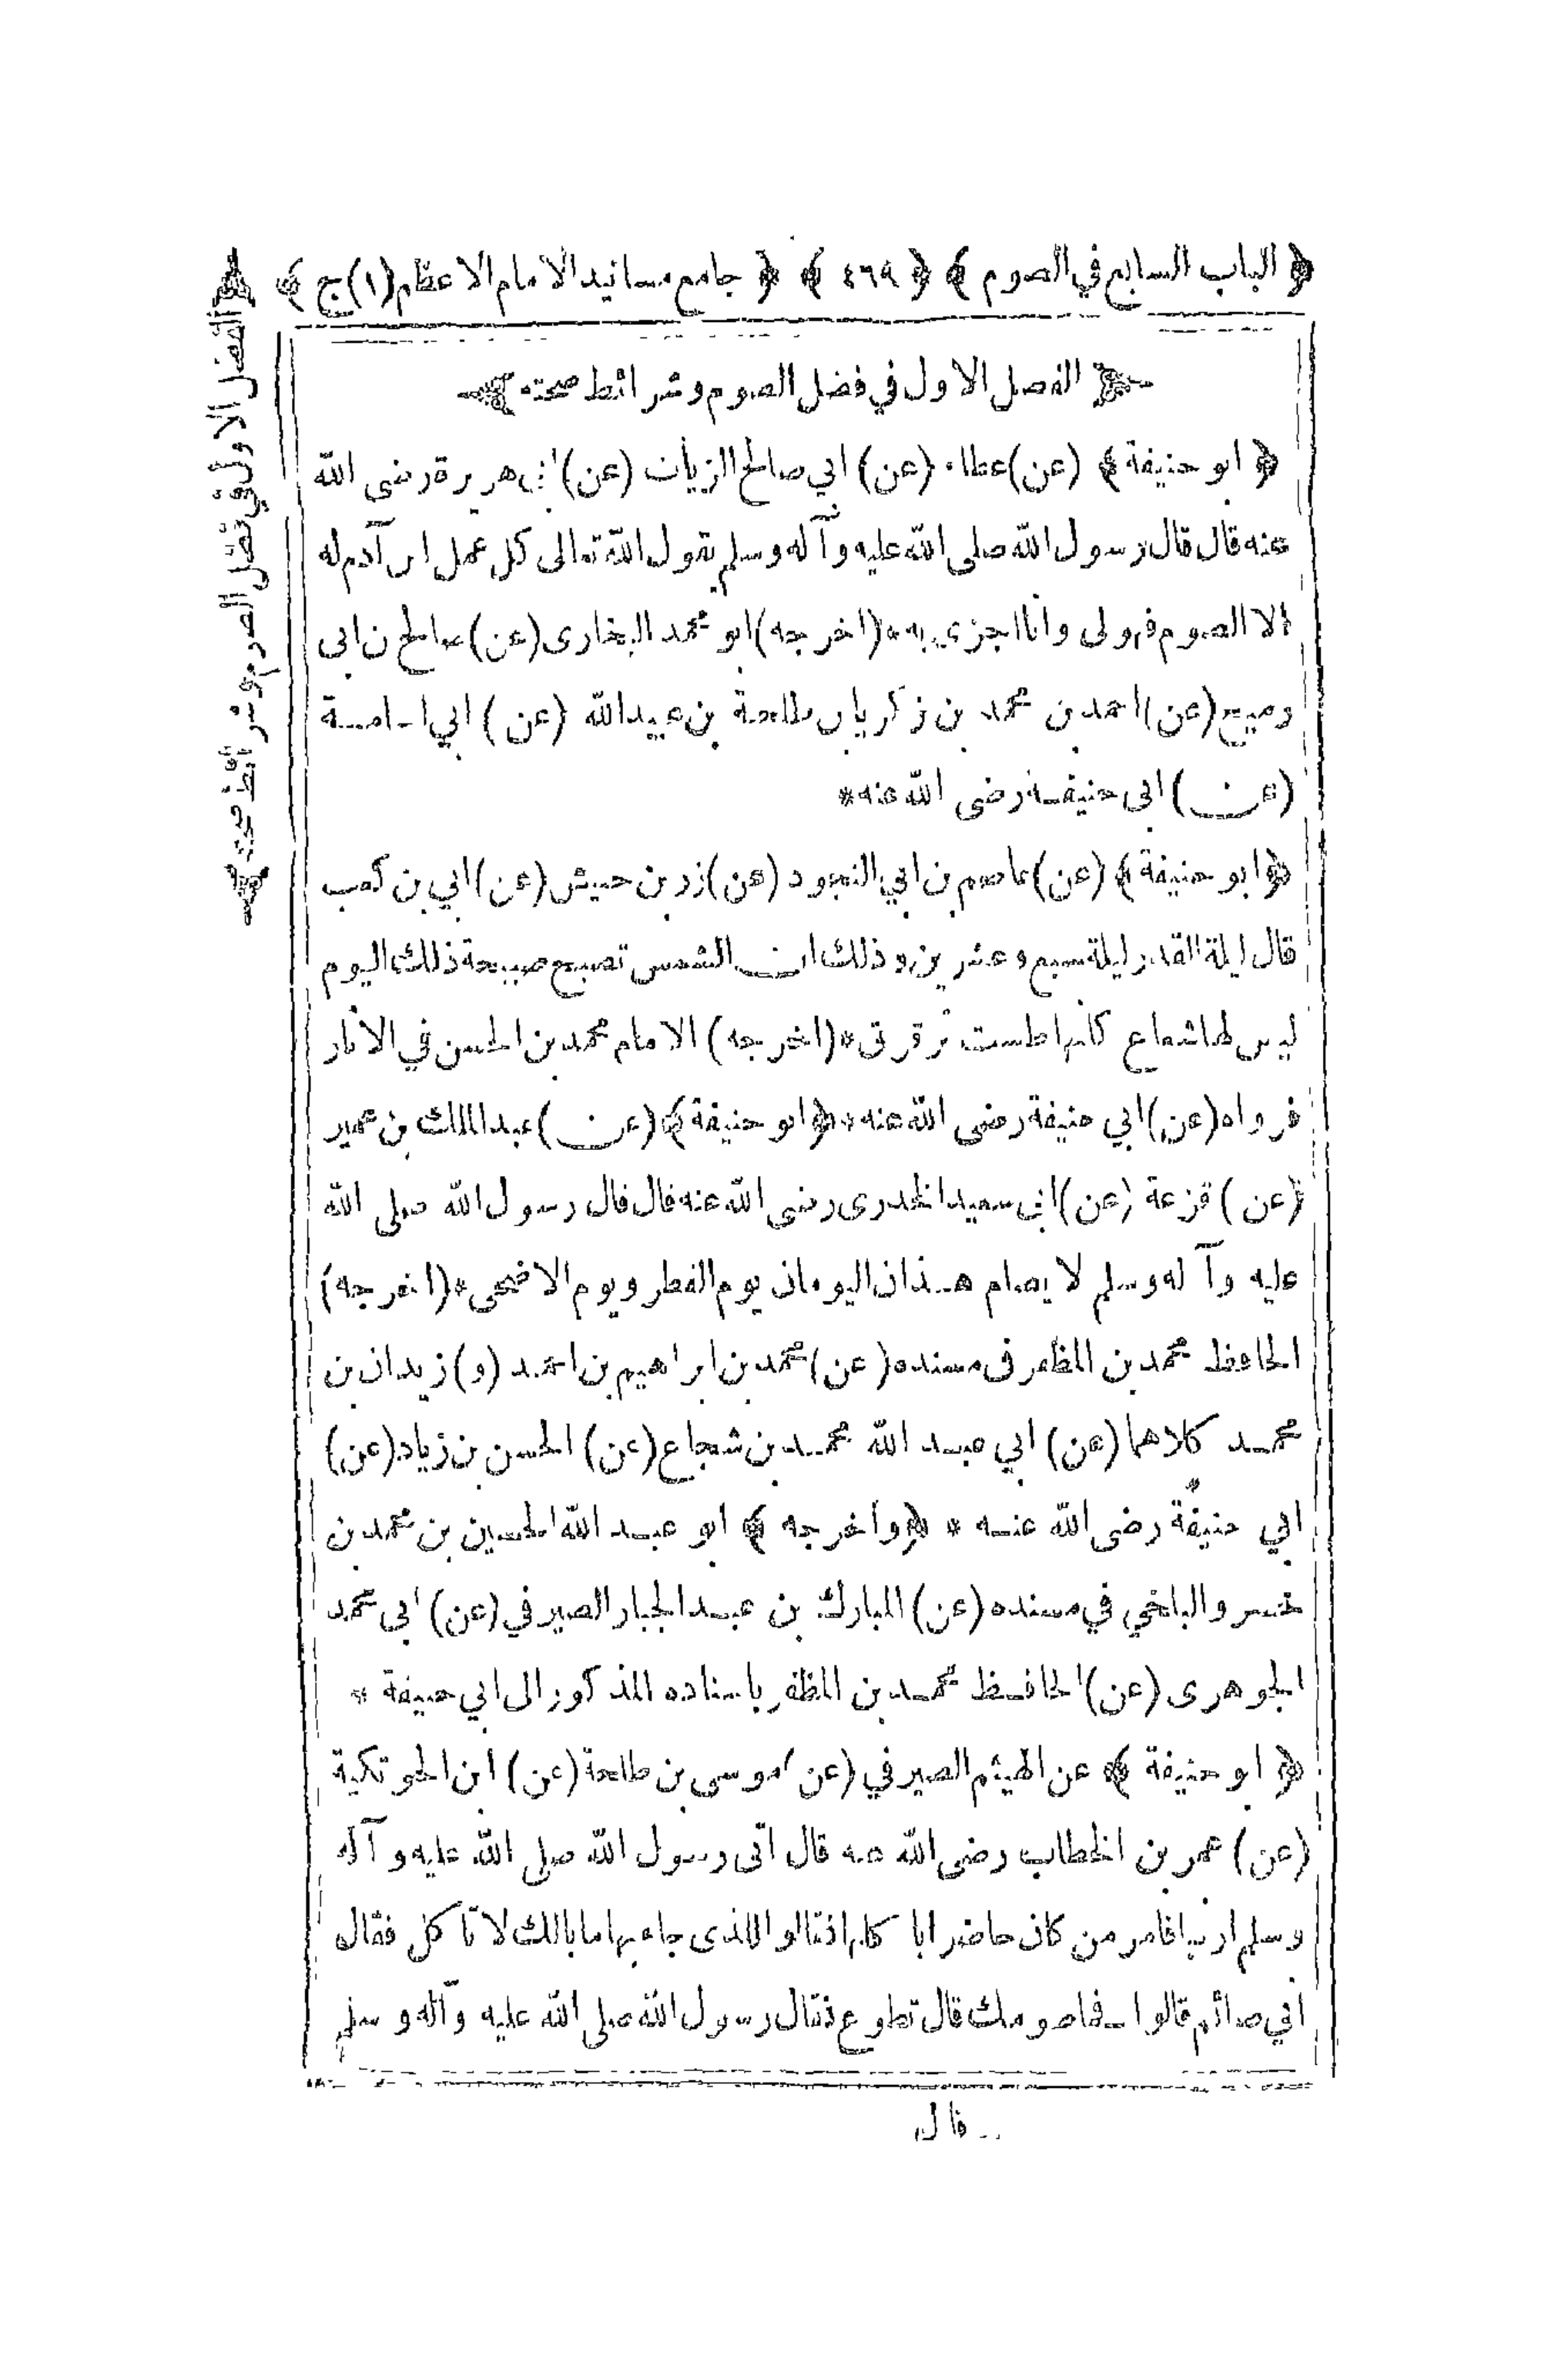 ﴿ الباب السابع في الصوم ﴾ ﴿ ٤٦٩ ﴾ ﴿ جامع مسانيد الامام الاعظم (١) ج ﴾
الفصل الاول في فضل الصوم وشرائط صحته
﴿ ابو حنيفة ﴾ (عن) عطاء (عن) ابي صالح الزيات (عن) ابي هريرة رضى الله
عنه قال قال رسول الله صلى الله عليه وآله وسلم يقول الله تعالى كل عمل ابن آدم له
الا الصوم فهو لى وانا اجزى به * (اخرجه) ابو محمد البخارى (عن) صالح بن ابى
رميح (عن) احمد بن محمد بن زكريا بن طلحة بن عبيد الله (عن) ابي اسامــة
(عن) ابى حنيفة رضى الله عنه *
﴿ ابو حنيفة ﴾ (عن) عاصم بن ابي النجود (عن) زر بن حبيش (عن) ابي بن كعب
قال ليلة القدر ليلة سبع وعشرين وذلك ان الشمس تصبح صبيحة ذلك اليوم
ليس لها شعاع كانها طست ترقرق * (اخرجه) الامام محمد بن الحسن في الآثار
فرواه (عن) ابي حنيفة رضى الله عنه * ﴿ ابو حنيفة ﴾ (عن) عبد الملك بن عمير
(عن) قزعة (عن) ابى سعيد الخدرى رضى الله عنه قال قال رسول الله صلى الله
عليه وآله وسلم لا يصام هــذان اليومان يوم الفطر ويوم الاضحى * (اخرجه)
الحافظ محمد بن المظفر فى مسنده (عن) محمد بن ابراهيم بن احمد (و) زيدان بن
محمــد كلاهما (عن) ابي عبــد الله محمــد بن شجاع (عن) الحسن بن زياد (عن)
ابي حنيفة رضى الله عنــه * ﴿ واخرجه ﴾ ابو عبــد الله الحسين بن محمد بن
خسرو البلخي في مسنده (عن) المبارك بن عبــد الجبار الصيرفي (عن) ابى محمد
الجوهرى (عن) الحافــظ محمــد بن المظفر باسناده المذكور الى ابي حنيفة *
﴿ ابو حنيفة ﴾ عن الهيثم الصيرفي (عن) موسى بن طلحة (عن) ابن الحوتكية
(عن) عمر بن الخطاب رضى الله عنه قال اتى رسول الله صلى الله عليه وآله
وسلم ارنبا فامر من كان حاضرا باكلها فقالوا للذى جاء بها مابالك لا تأكل فقال
اني صائم قالوا فما صومك قال تطوع فقال رسول الله صلى الله عليه وآله وسلم
قال
الفصل الاول في فضل الصوم وشرائط صحته